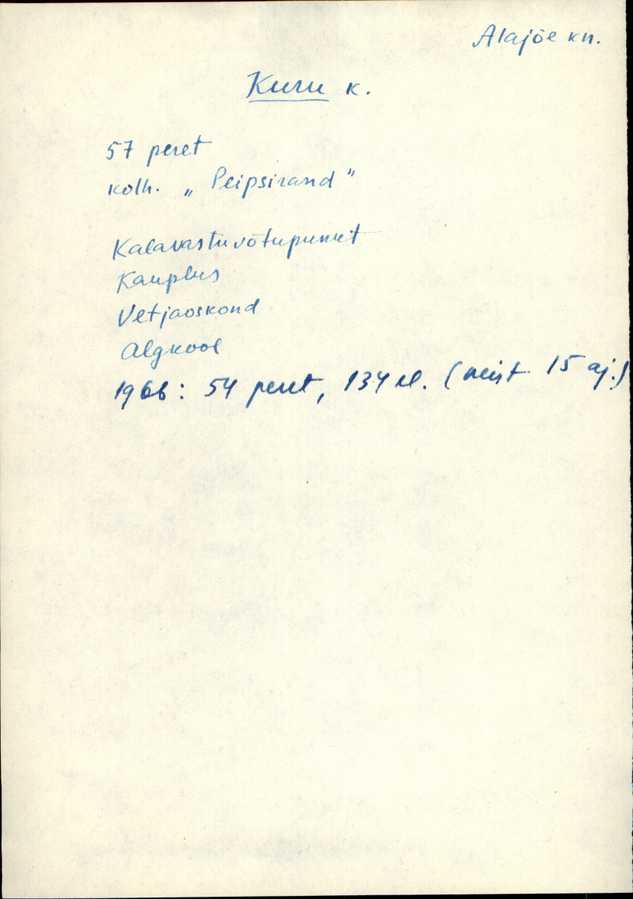 Alajõe kn.
Kuru k.
57 peret
kolh. „Peipsirand"
Kalavastuvõtupunkt
Kauplus
Vetjaoskond
Algkool
1966: 54 peret, 134 el. (neist 15 aj.)